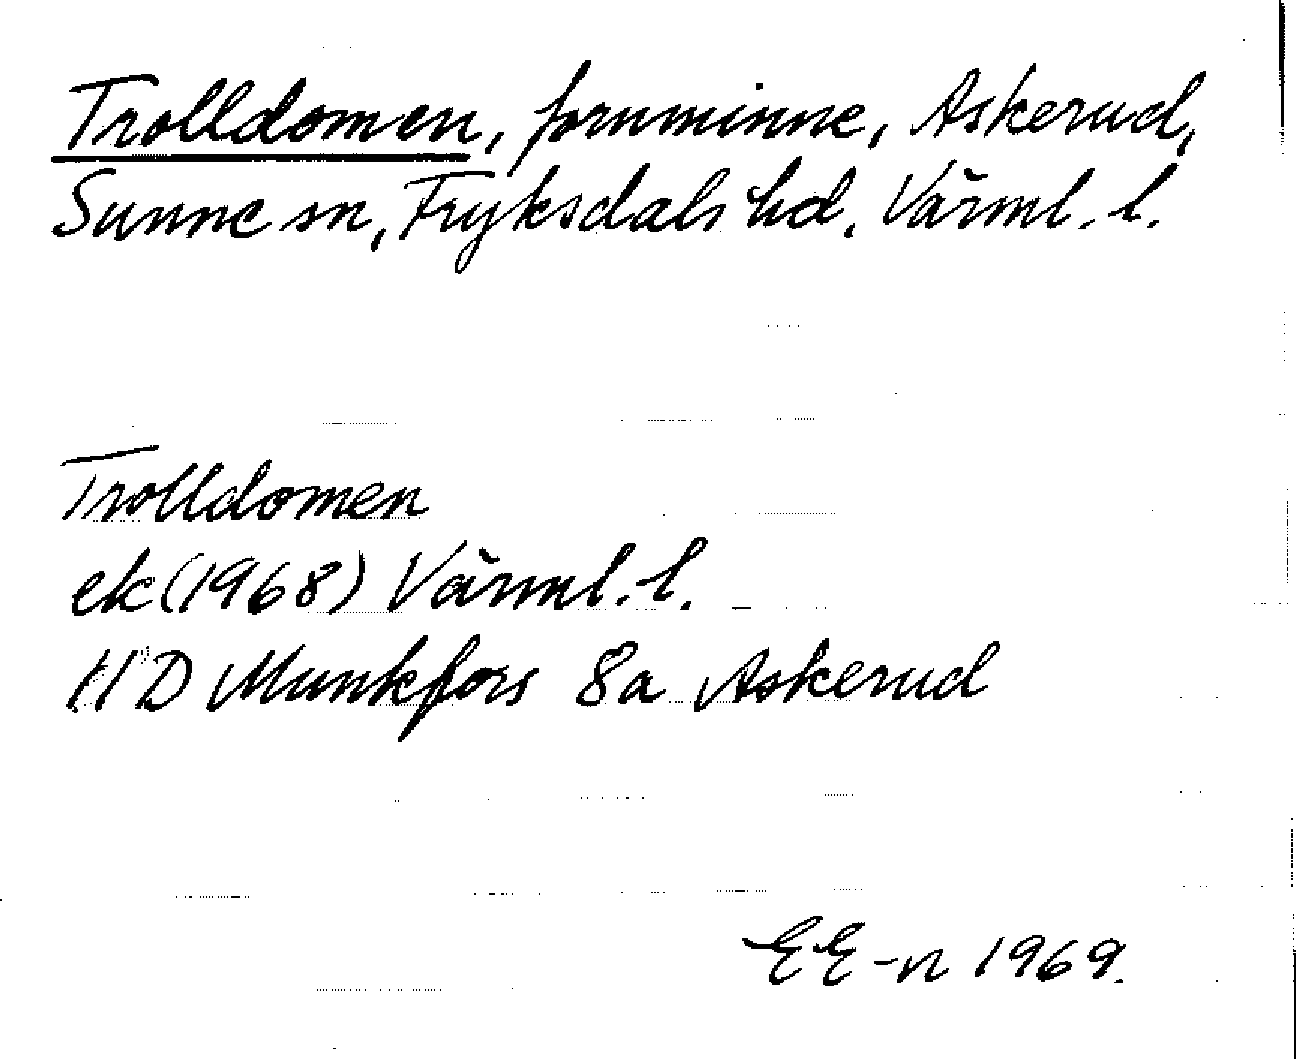 Trolldomen, fornminne, Askerud,
Sunne sn, Fryksdals hd, Värml. l.
Trolldomen
ek (1968) Värml. l.
11D Munkfors 8a Askerud
EE-n 1969.